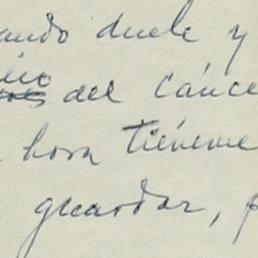 ando duele y
del cánce
hora tiéneme
guardar, p